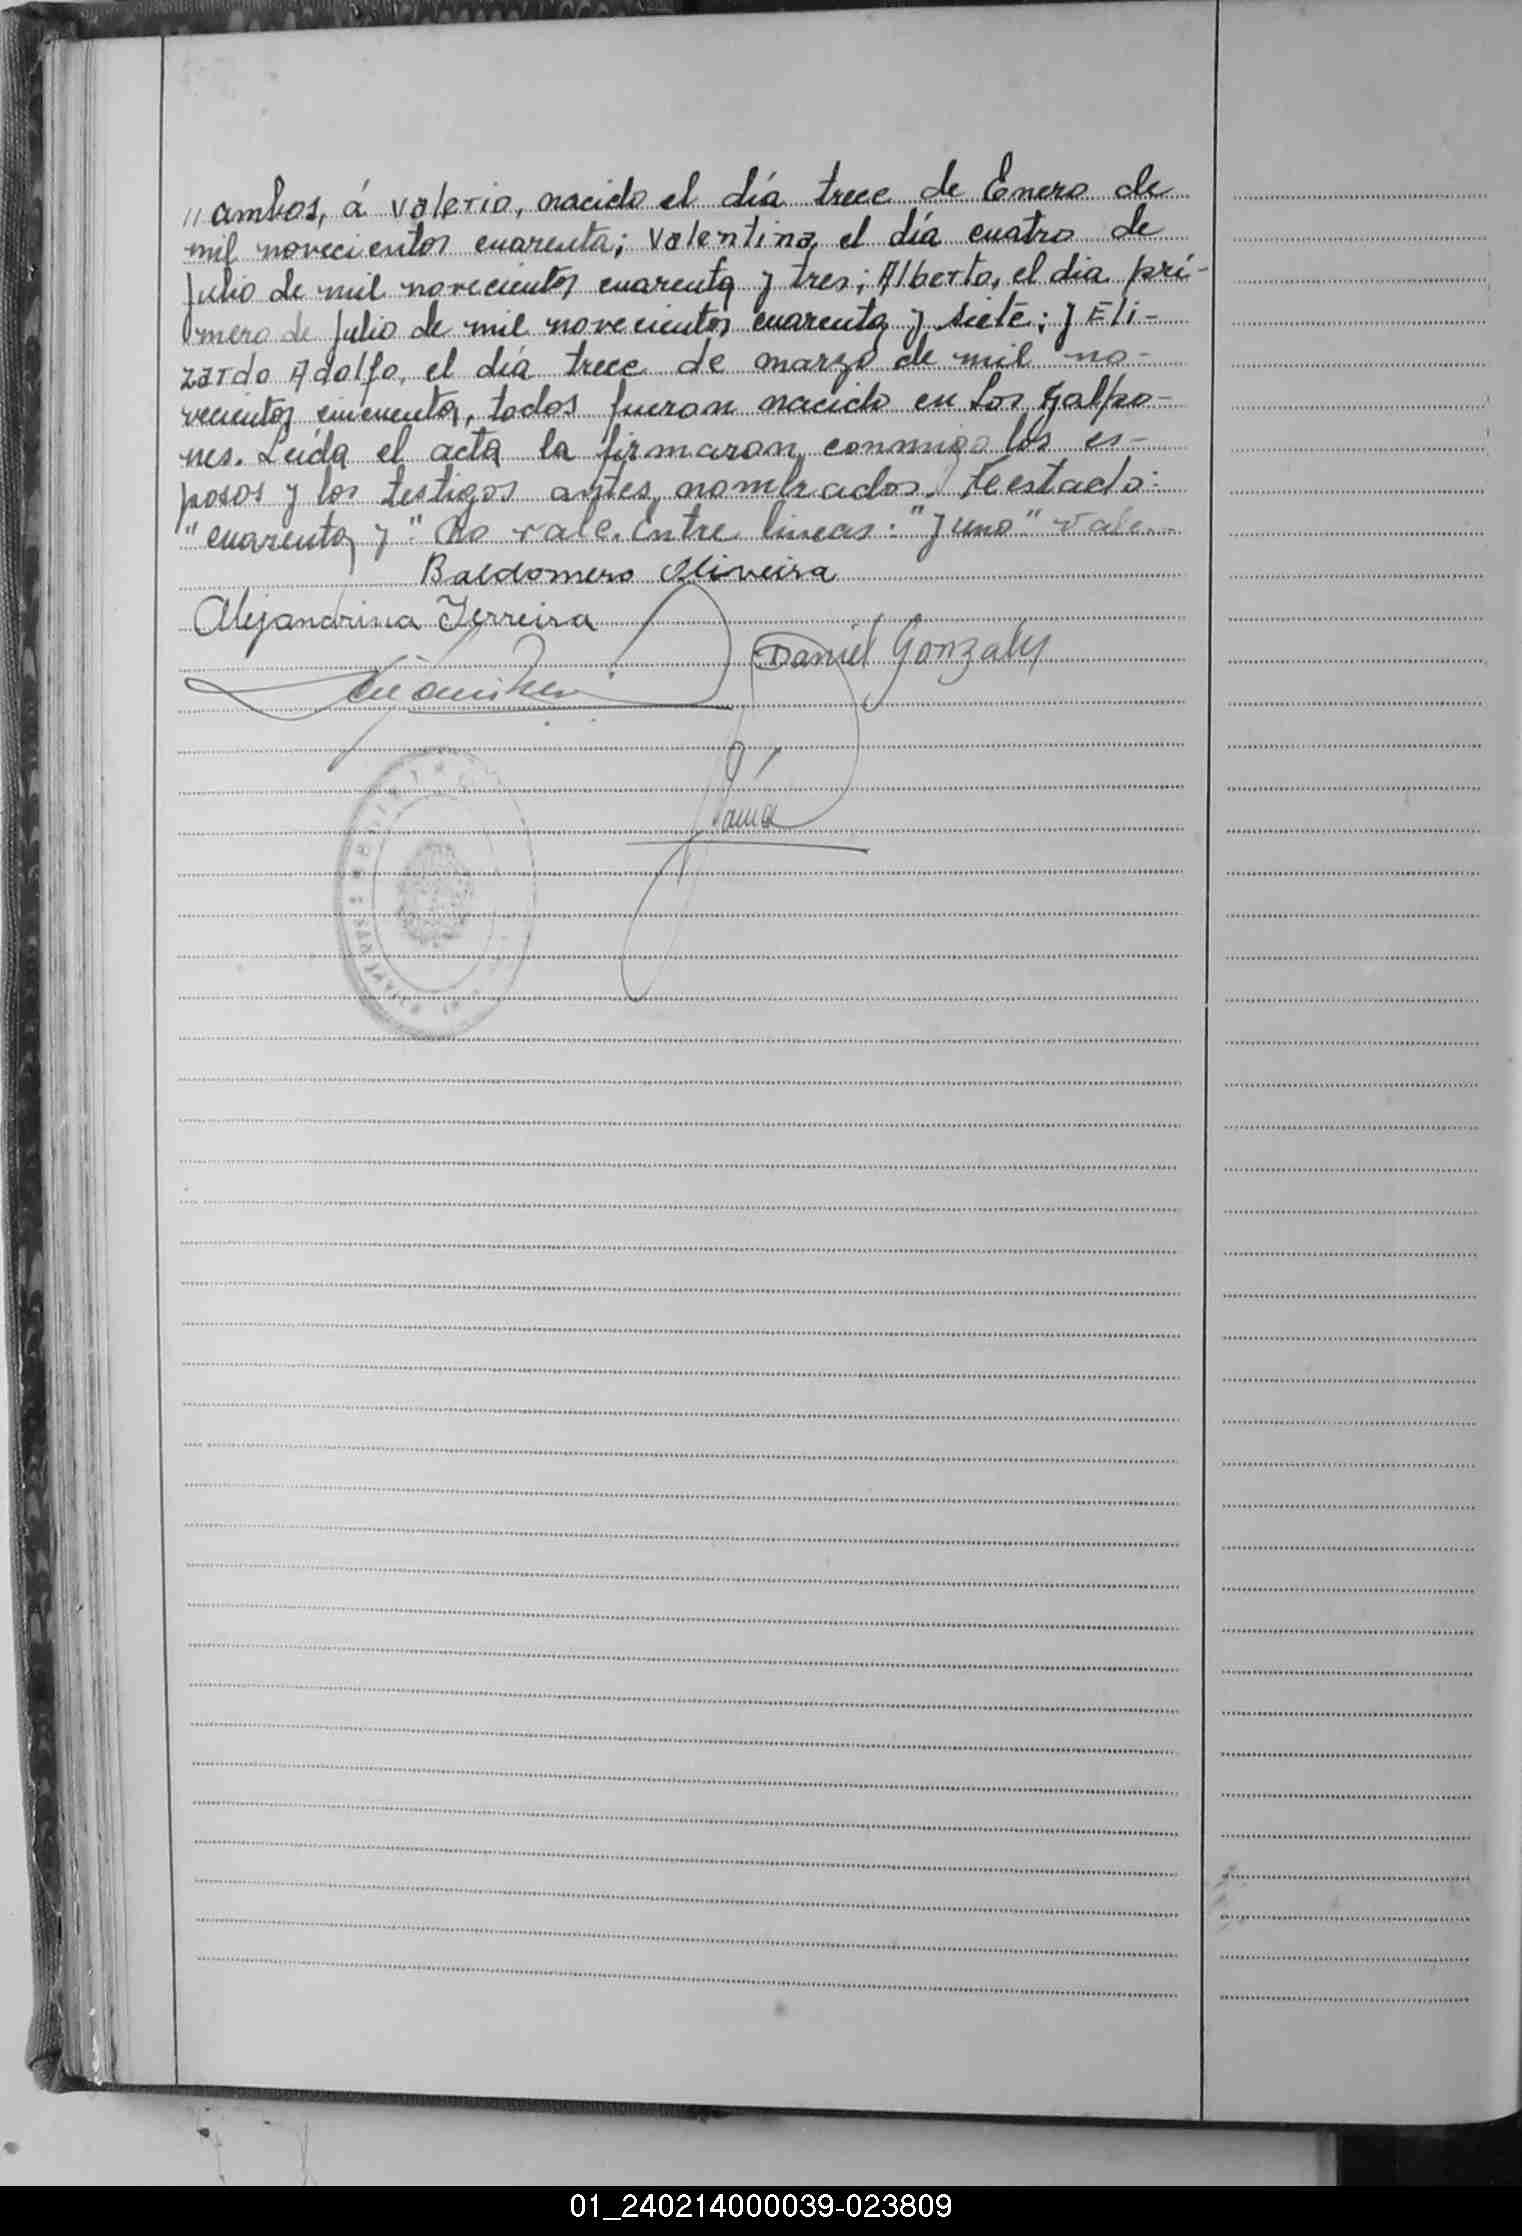 " ambos, á Valerio, nacido el día trece de Enero de
mil novecientos cuarenta; Valentina, el día cuatro de
Julio de mil novecientos cuarenta y tres; Alberto, el dia pri-
mero de Julio de mil novecientos cuarenta y siete; y Eli-
zardo Adolfo, el día trece de marzo de mil no-
vecientos cincuenta, todos fueron nacido en Los Galpo-
nes. Leída el acta la firmaron conmigo los es-
posos y los testigos antes nombrados. Testado:
"cuarenta y" No vale. Entre lineas: "y uno" Vale.
Baldomero Oliveira
Alejandrina Ferreira
Daniel Gonzalez
01_240214000039-023809